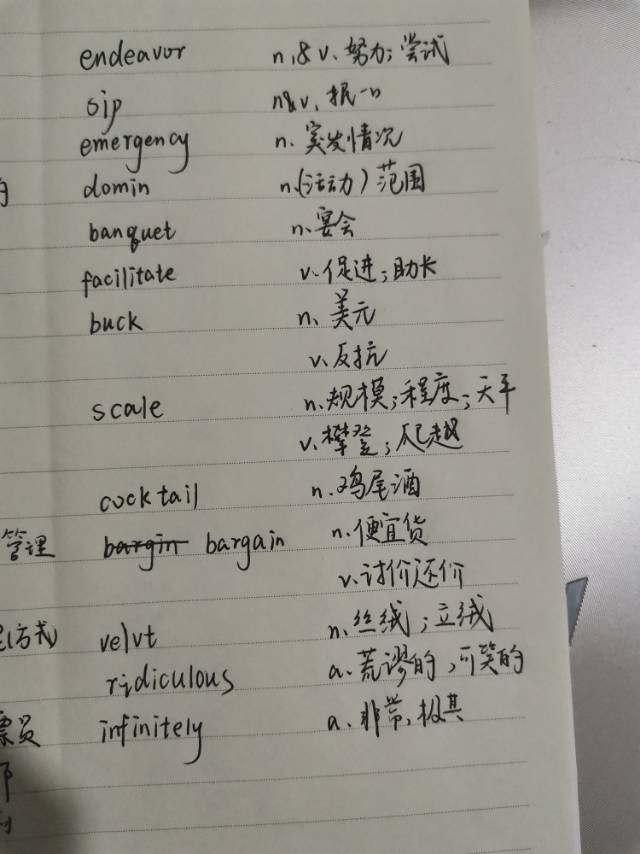 endeavor n.&v. 努力；尝试
sip n&v. 抿一口
emergency n. 突发情况
domin n.(活动）范围
banquet n. 宴会
facilitate v. 促进；助长
buck n. 美元
v. 反抗
scale n. 规模；程度；天平
v. 攀登；爬越
cocktail n. 鸡尾酒
管理 bargin bargain n. 便宜货
v. 讨价还价
方式) velvt n. 丝绒；立绒
ridiculous a. 荒谬的，可笑的
票员 infinitely a. 非常，极其